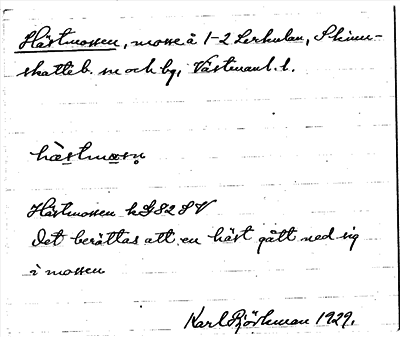 Hästmossen, mosse å 1-2 Lerkulan, Skinn-
skatteb. sn och by, Västmanl. l.
hästmosn̥
Hästmossen kG82SV
Det berättas att en häst gått ned sig
i mossen
Karl Björkman 1929.